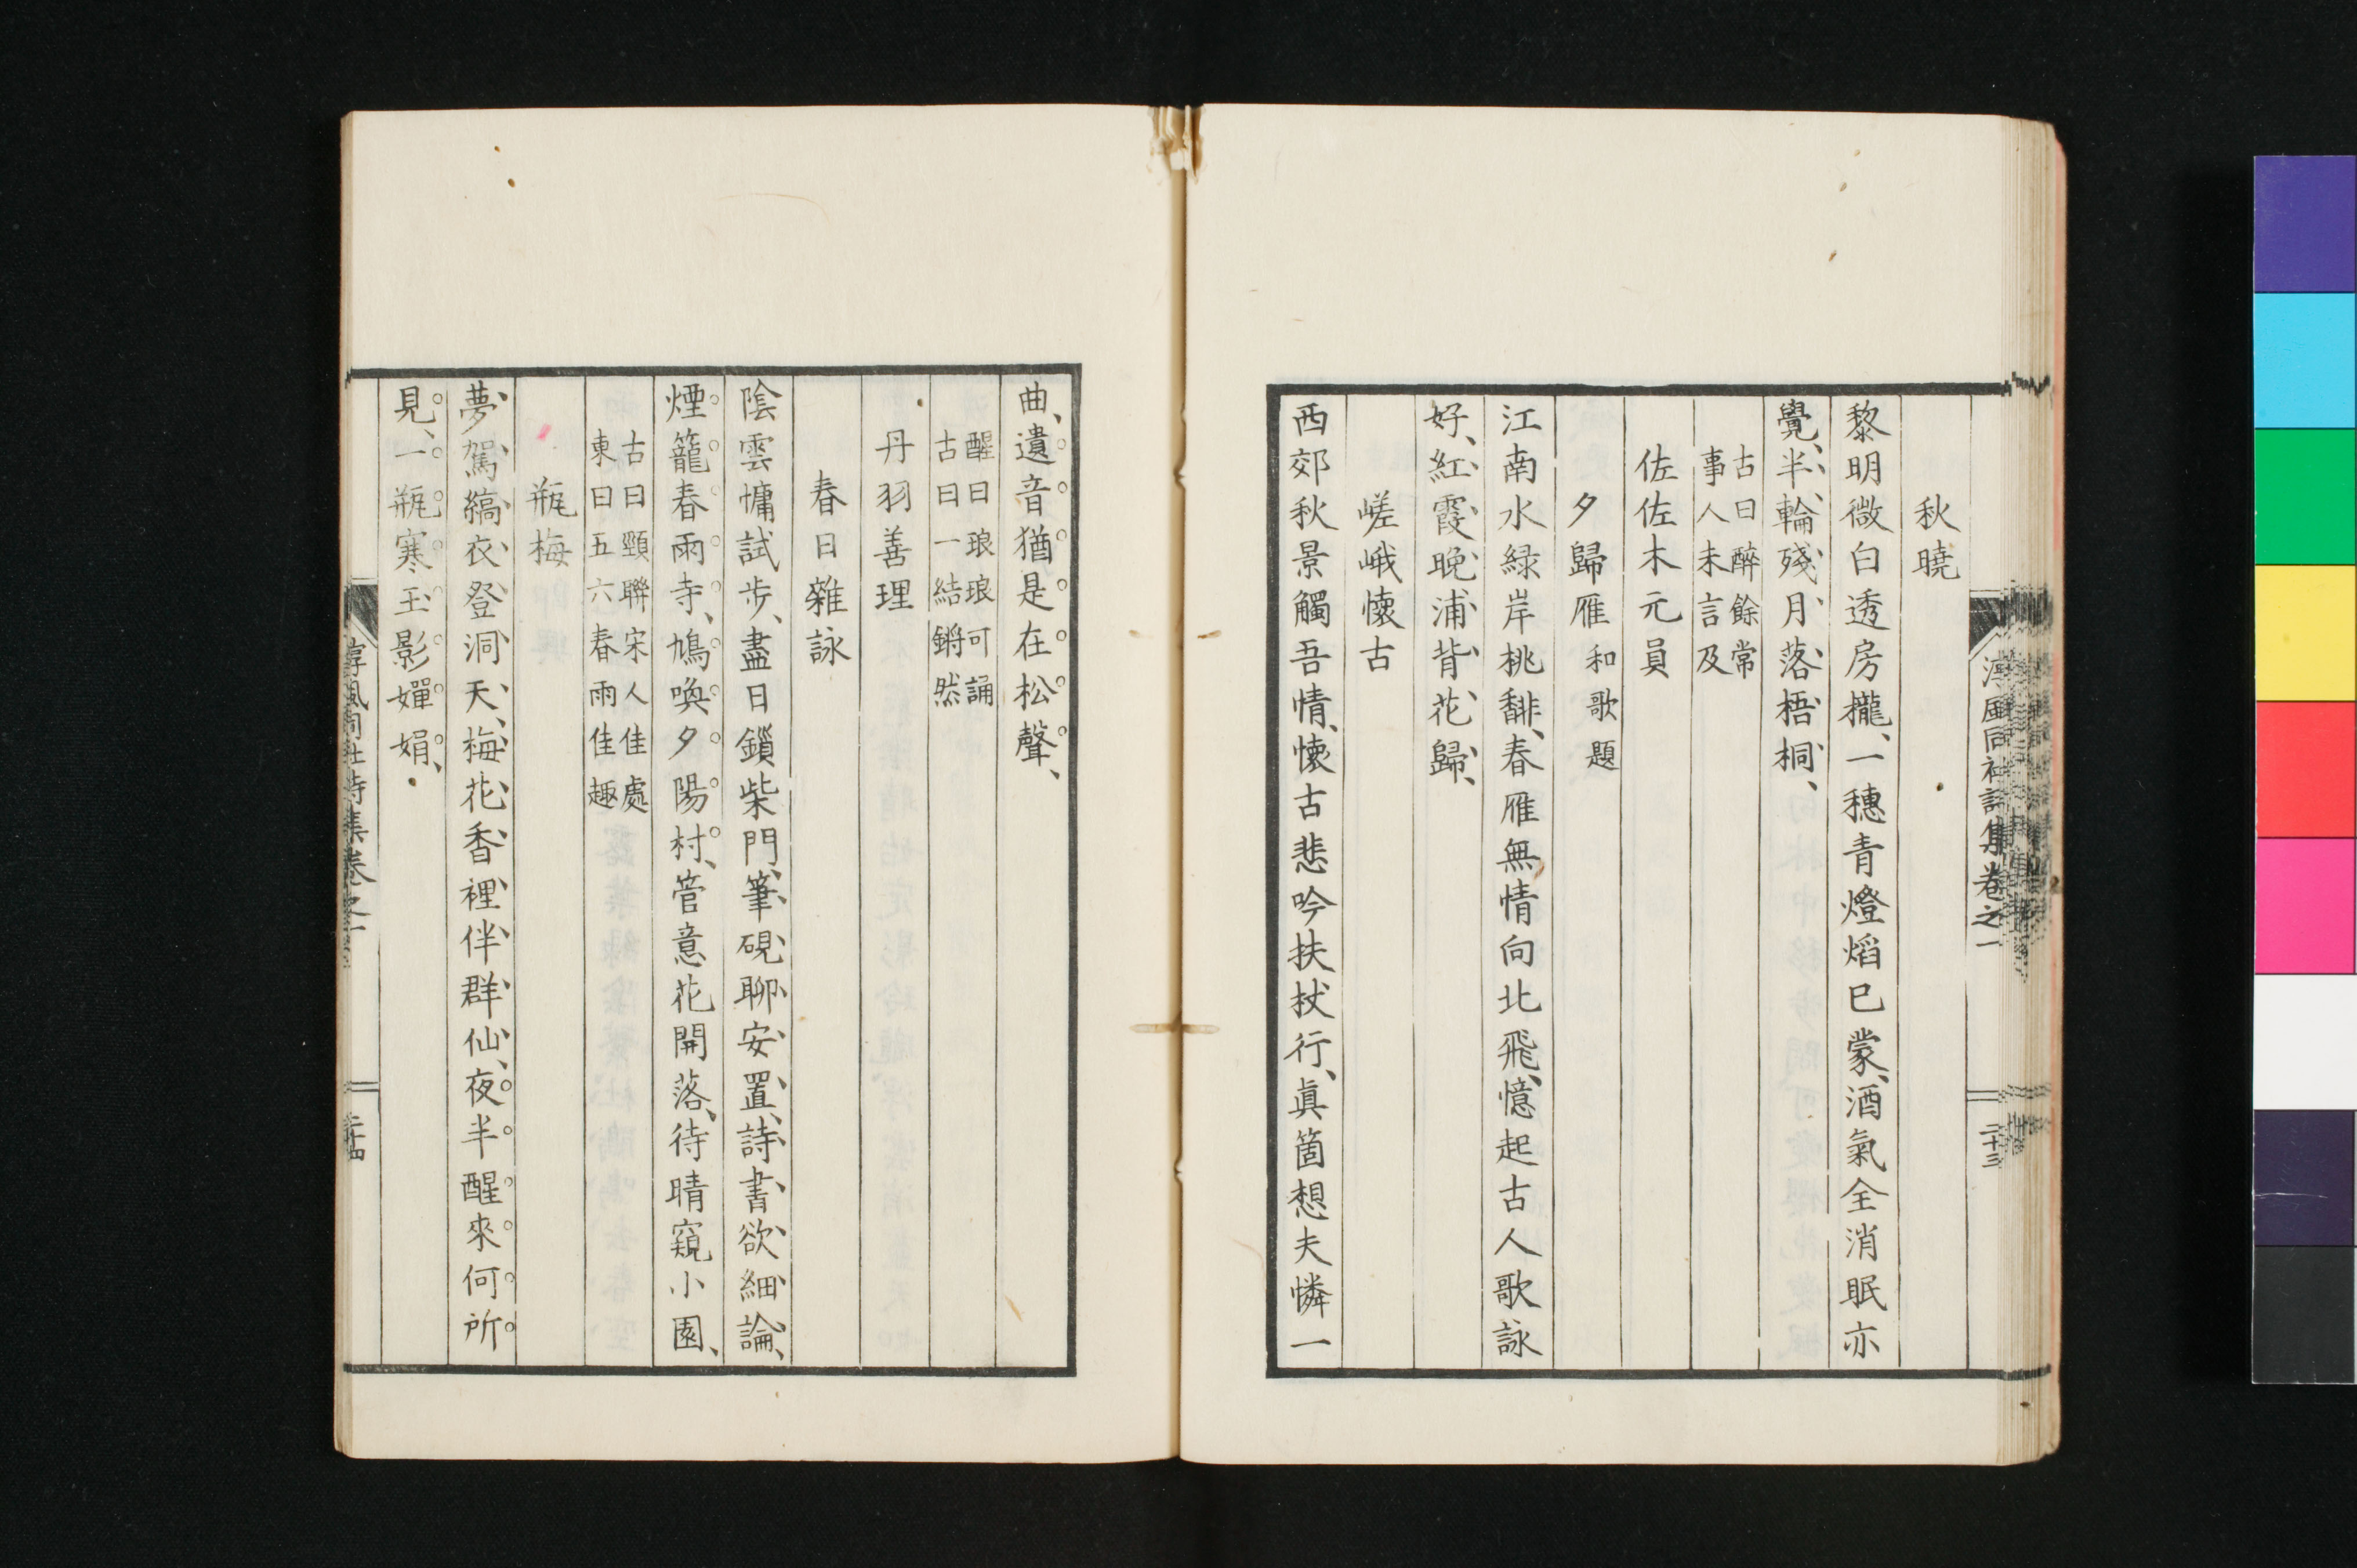 秋曉
黎明微白透房櫳、一穗青燈焰已蒙、酒氣全消眠亦
覺、半輪殘月落梧桐、
古曰醉餘常
事人未言及
佐佐木元員
夕歸雁 和歌題
江南水緑岸桃馡、春雁無情向北飛、憶起古人歌詠
好、紅霞晩浦背花歸、
嵯峨懷古
西郊秋景觸吾情、懷古悲吟扶杖行、眞箇想夫憐一
淳風同社詩集卷之一
二十三
曲、遺音猶是在松聲、
醒曰琅琅可誦
古曰一結鏘然
丹羽善理
春日雜詠
陰雲慵試步、盡日鎖柴門、筆硯聊安置、詩書欲細論、
煙籠春雨寺、鳩喚夕陽村、管意花開落、待晴窺小園、
古曰頸聯宋人佳處
東曰五六春雨佳趣
瓶梅
夢駕縞衣登洞天、梅花香裡伴群仙、夜半醒來何所
見、一瓶寒玉影嬋娟、
淳風同社詩集卷之一